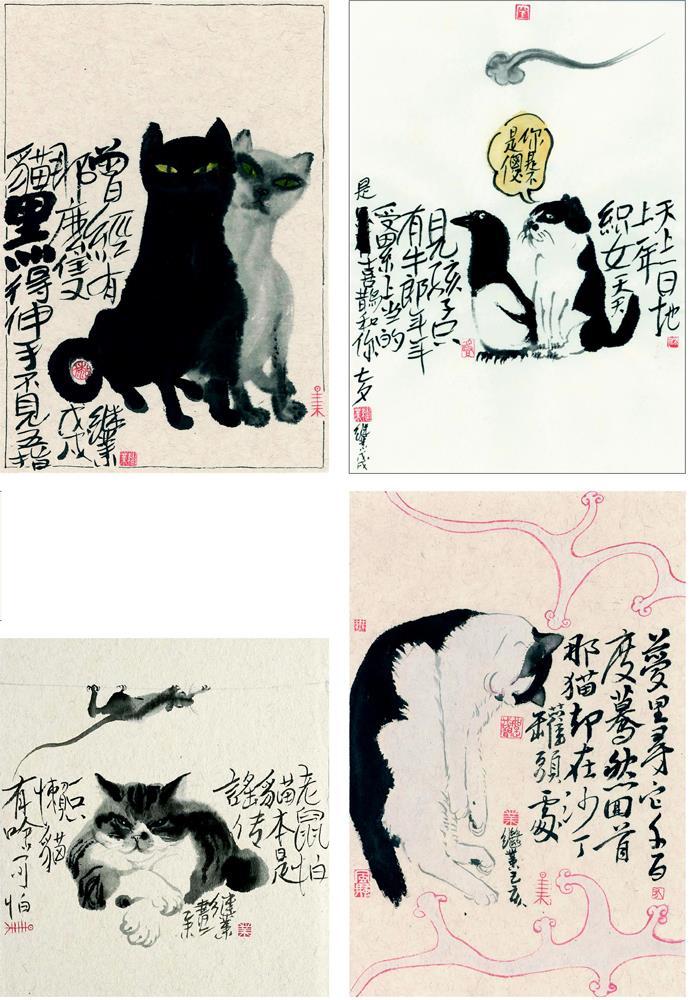 曾經有
那麼隻
貓黑得伸手不見五指
继業
戊戌
你是不
是傻
天上一日地
上一年
織女天天
見孩子只
有牛郎年年
受累上当的
是喜鵲和你
七夕
继業戊戌
老鼠怕
貓本是
謠传
一只
懶貓
有啥可怕
继業
夢里尋它千百
度驀然回首
那猫却在沙丁
罐頭處
繼業己亥